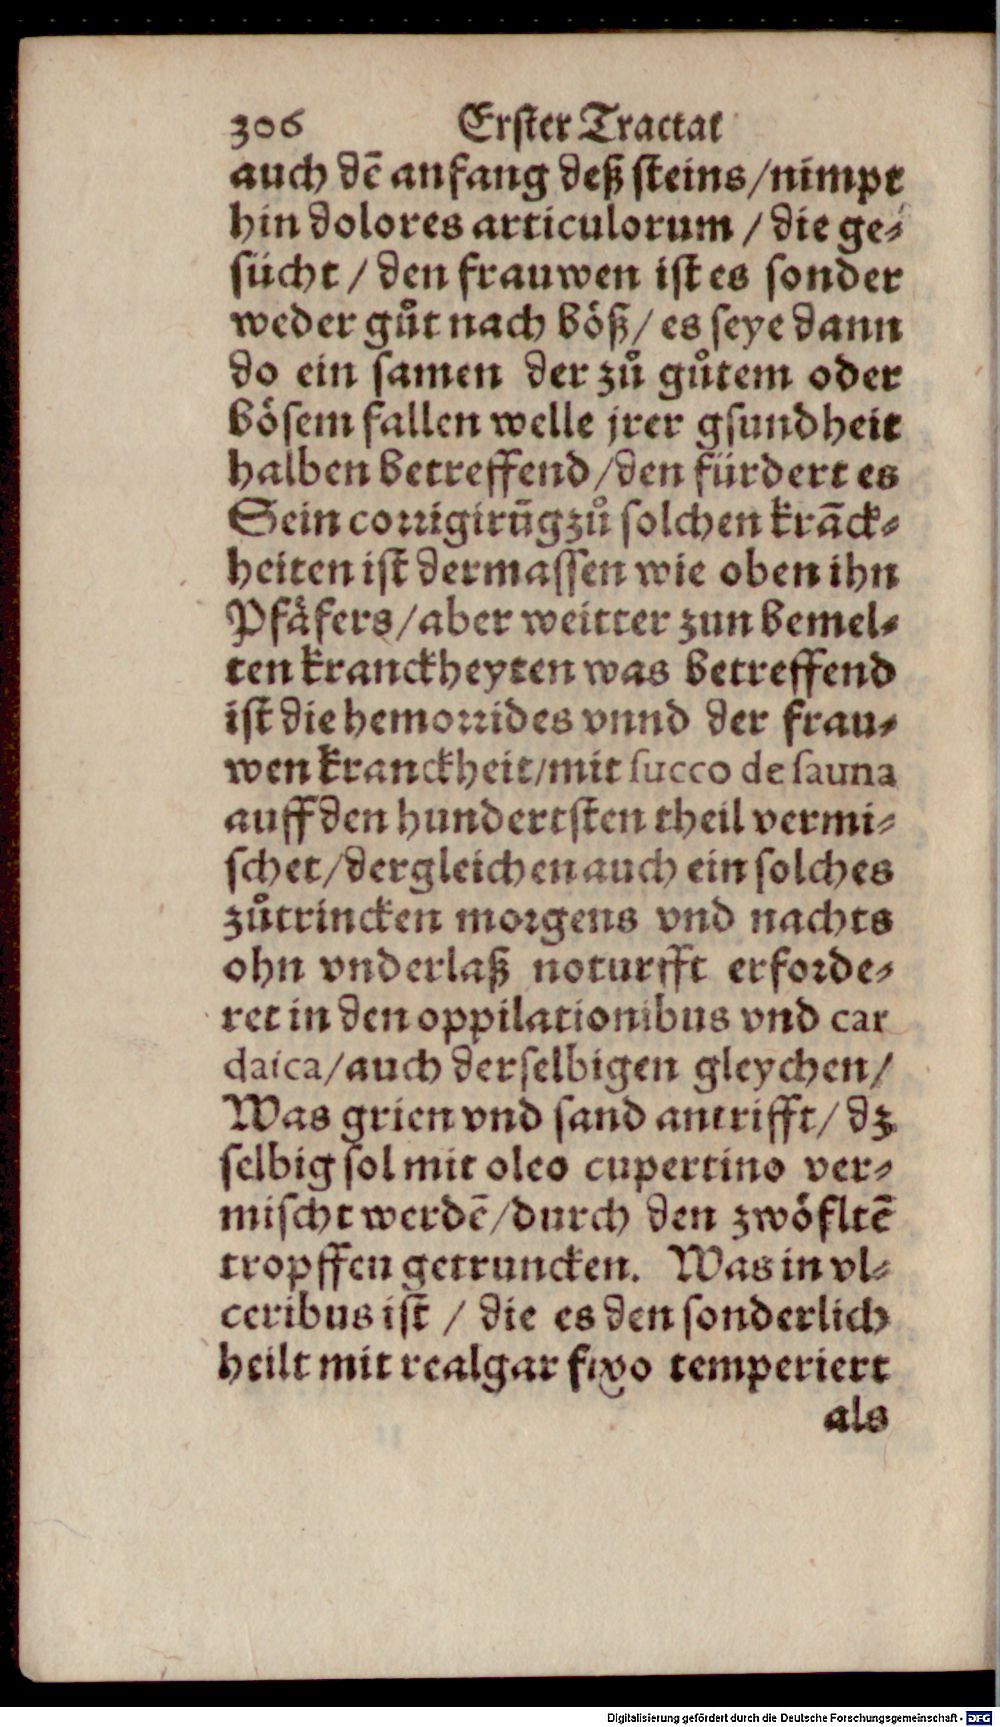 306 Erster Tractat
auch dē anfang deß steins/nimpt
hin dolores articulorum / die ge⸗
sücht / den frauwen ist es sonder
weder gůt nach böß/ es seye dann
do ein samen der zů gůtem oder
bösem fallen welle jrer gsundheit
halben betreffend/den fürdert es
Sein corrigirūg zů solchen krāck⸗
heiten ist dermassen wie oben ihn
Pfäfers/aber weitter zun bemel⸗
ten kranckheyten was betreffend
ist die hemorrides vnnd der frau⸗
wen kranckheit/mit succo de sauna
auff den hundertsten theil vermi⸗
schet/dergleichen auch ein solches
zůtrincken morgens vnd nachts
ohn vnderlaß noturfft erforde⸗
ret in den oppilationibus vnd car
daica/auch derselbigen gleychen/
Was grien vnd sand antrifft/ dz
selbig sol mit oleo cupertino ver⸗
mischt werdē/durch den zwöfltē
tropffen getruncken. Was in vl⸗
ceribus ist / die es den sonderlich
heilt mit realgar fixo temperiert
als
Digitalisierung gefördert durch die Deutsche Forschungsgemeinschaft - DFG